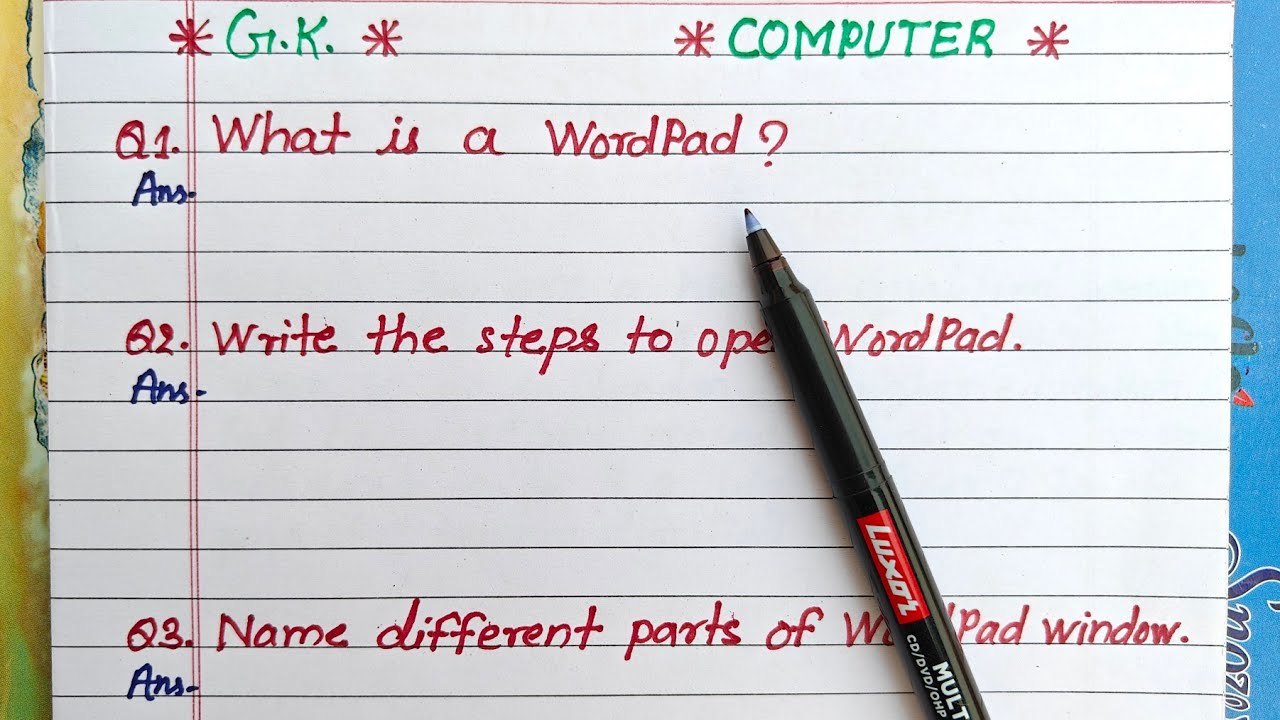 * G.K. * * COMPUTER *
Q1. What is a WordPad?
Ans.
Q2. Write the steps to open WordPad.
Ans.
Q3. Name different parts of WordPad window.
Ans.
LUXOR
CD/DVD/OHP